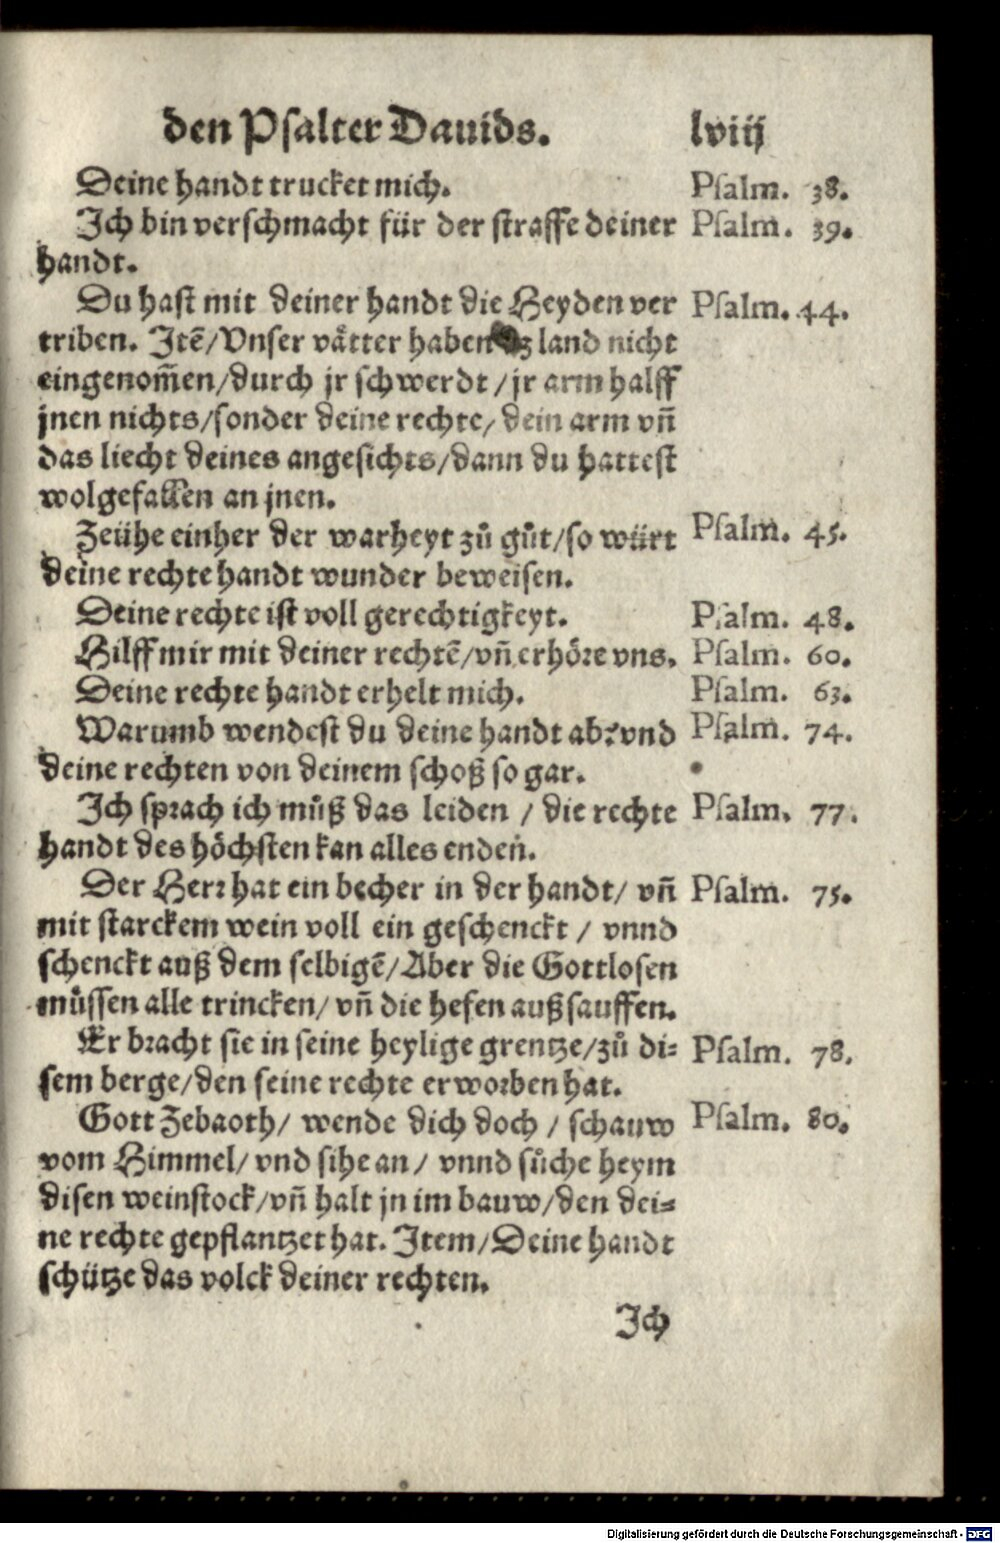 den Psalter Dauids. lviij
Deine handt trucket mich. Psalm. 38.
Ich bin verschmacht für der straffe deiner Psalm. 39.
handt.
Du hast mit deiner handt die Heyden ver Psalm. 44.
triben. Itē/Vnser vätter haben land nicht
eingenom̄en/durch jr schwerdt/jr arm halff
jnen nichts/sonder deine rechte/dein arm vn̄
das liecht deines angesichts/dann du hattest
wolgefallen an jnen.
Zeühe einher der warheyt zů gůt/so würt Psalm. 45.
deine rechte handt wunder beweisen.
Deine rechte ist voll gerechtigkeyt. Psalm. 48.
Hilff mir mit deiner rechtē/vn̄ erhöre vns. Psalm. 60.
Deine rechte handt erhelt mich. Psalm. 63.
Warumb wendest du deine handt ab? vnd Psalm. 74.
deine rechten von deinem schoß so gar.
Ich sprach ich můß das leiden / die rechte Psalm. 77.
handt des höchsten kan alles enden.
Der Herr hat ein becher in der handt/ vn̄ Psalm. 75.
mit starckem wein voll ein geschenckt / vnnd
schenckt auß dem selbigē/Aber die Gottlosen
müssen alle trincken/ vn̄ die hefen auß sauffen.
Er bracht sie in seine heylige grentze/zů di= Psalm. 78.
sem berge/den seine rechte erworben hat.
Gott Zebaoth/ wende dich doch / schauw Psalm. 80.
vom Himmel/ vnd sihe an/ vnnd sůche heym
disen weinstock/vn̄ halt jn im bauw/den dei=
ne rechte gepflantzet hat. Item/Deine handt
schütze das volck deiner rechten.
Ich
Digitalisierung gefördert durch die Deutsche Forschungsgemeinschaft - DFG